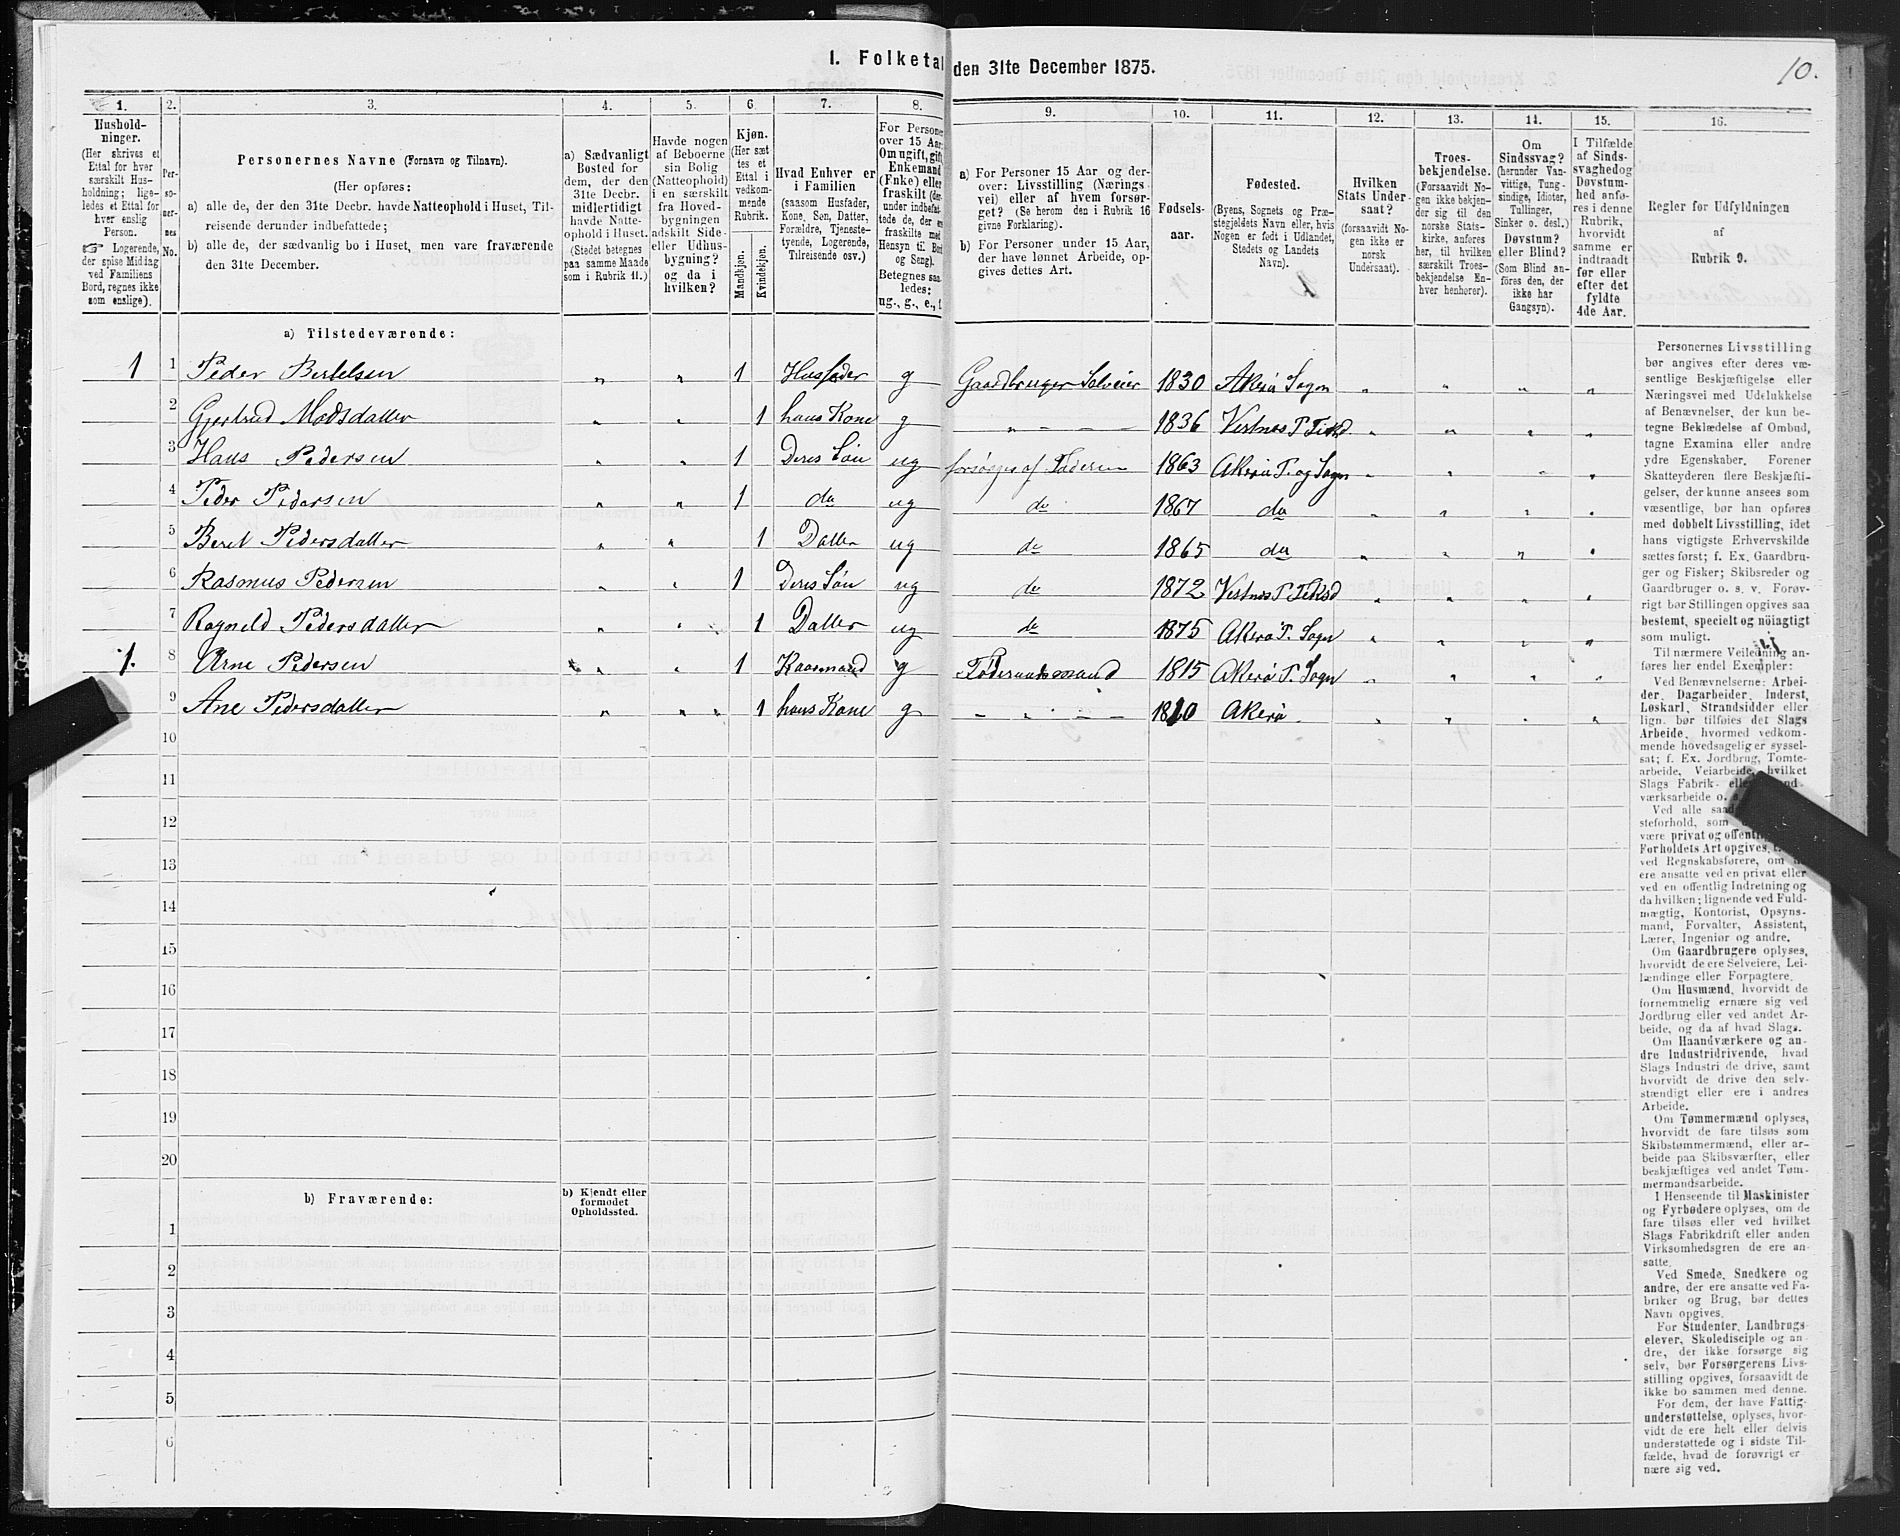 I. Folketal den 31te December 1875.
10.
1. 2. 3. 4. 5. 6. 7. 8. 9. 10. 11. 12. 13. 14. 15. 16.
Hushold-
ninger.
(Her skrives et
Ettal for hver
særskilt Hus-
holdning; lige-
ledes et Ettal for
hver enslig
Person.
☞ Logerende,
der spise Middag
ved Familiens
Bord, regnes ikke
som enslige).
Per-
so-
ner-
nes
No.
Personernes Navne (Fornavn og Tilnavn).
(Her opføres:
a) alle de, der den 31te Decbr. havde Natteophold i Huset, Til-
reisende derunder indbefattede;
b) alle de, der sædvanlig bo i Huset, men vare fraværende
den 31te December.
a) Sædvanligt
Bosted for
dem, der den
31te Decbr.
midlertidigt
havde Natte-
ophold i Huset.
(Stedet betegnes
paa samme Maade
som i Rubrik 11.)
Havde nogen
af Beboerne
sin Bolig
(Natteophold)
i en særskilt
fra Hoved-
bygningen
adskilt Side-
eller Udhus-
bygning?
og da i
hvilken?
Kjøn.
(Her sæt-
tes et
Ettal i
vedkom-
mende
Rubrik.
Mandkjøn.
Kvindekjøn.
Hvad Enhver er
i Familien
(saasom Husfader,
Kone, Søn, Datter,
Forældre, Tjeneste-
tyende, Logerende,
Tilreisende osv.)
For Personer
over 15 Aar:
Om ugift, gift,
Enkemand
(Enke) eller
fraskilt (der-
under indbefat-
tede de, der ere
fraskilte med
Hensyn til Bord
og Seng).
Betegnes saa-
ledes:
ug., g., e., f.
a) For Personer 15 Aar og der-
over: Livsstilling (Nærings-
vei) eller af hvem forsør-
get? (Se herom den i Rubrik 16
givne Forklaring).
b) For Personer under 15 Aar,
der have lønnet Arbeide, op-
gives dettes Art.
Fødsels-
aar.
Fødested.
(Byens, Sognets og Præ-
stegjeldets Navn eller, hvis
Nogen er født i Udlandet,
Stedets og Landets
Navn).
Hvilken
Stats Under-
saat?
(forsaavidt No-
gen ikke er
norsk
Undersaat).
Troes-
bekjendelse.
(Forsaavidt No-
gen ikke bekjen-
der sig til den
norske Stats-
kirke, anføres
her, til hvilken
særskilt Troes-
bekjendelse En-
hver henhører).
Om
Sindssvag?
(herunder Van-
vittige, Tung-
sindige, Idioter,
Tullinger,
Sinker o. desl.)
Døvstum?
eller Blind?
(Som Blind an-
føres den, der
ikke har
Gangsyn).
I Tilfælde
af Sinds-
svaghed og
Døvstum-
hed anfø-
res i denne
Rubrik,
hvorvidt
samme er
indtraadt
før eller
efter det
fyldte
4de Aar.
Regler for Udfyldningen
af
Rubrik 9.
a) Tilstedeværende:
1 1 Peder Bertelsen „ „ 1 Husfader g Gaardbruger Selveier 1830 Akerø Sogn „ „ „ „
2 Gjertrud Madsdatter „ „ 1 hans Kone g „ – – – 1836 Vestnes P Fiksd „ „ „ „
3 Hans Pedersen „ „ 1 Deres Søn ug forsørges af Faderen 1863 Akerø P. og Sogn „ „ „ „
4 Peder Pedersen „ „ 1 do ug do 1867 do „ „ „ „
5 Beret Pedersdatter „ „ 1 Datter ug do 1865 do „ „ „ „
6 Rasmus Pedersen „ „ 1 Deres Søn ug do 1872 Vestnes P Fiksd „ „ „ „
7 Ragneld Pedersdatter „ „ 1 Datter ug do 1875 Akerø P. Sogn „ „ „ „
1. 8 Arne Pedersen „ „ 1 Kaarmand g Føderaadsmand 1815 Akerø P. Sogn „ „ „ „
9 Ane Pedersdatter „ „ „ 1 hans Kone g – „ – – 1810 Akerø „ „ „ „
10
11
12
13
14
15
16
17
18
19
20
b) Fraværende:
b) Kjendt eller
formodet
Opholdssted.
1
2
3
4
5
6
Personernes Livsstilling
bør angives efter deres væ-
sentlige Beskjæftigelse eller
Næringsvei med Udelukkelse
af Benævnelser, der kun be-
tegne Beklædelse af Ombud,
tagne Examina eller andre
ydre Egenskaber. Forener
Skatteyderen flere Beskjæfti-
gelser, der kunne ansees som
væsentlige, bør han opføres
med dobbelt Livsstilling, idet
hans vigtigste Erhvervskilde
sættes først; f. Ex. Gaardbru-
ger og Fisker; Skibsreder og
Gaardbruger o. s. v. Forøv-
rigt bør Stillingen opgives saa
bestemt, specielt og nøiagtigt
som muligt.
Til nærmere Veiledning an-
føres her endel Exempler:
Ved Benævnelserne: Arbei-
der, Dagarbeider, Inderst,
Løskarl, Strandsidder eller
lign. bør tilføies det Slags
Arbeide, hvormed vedkom-
mende hovedsagelig er syssel-
sat; f. Ex. Jordbrug, Tomte-
arbeide, Veiarbeide, hvilket
Slags Fabrik- eller
værksarbeide o. s.
Ved alle
steforhold, som
være privat og offentlig
Forholdets Art opgives,
ved Regnskabsførere, om
ere ansatte ved en privat eller
ved en offentlig Indretning og
da hvilken; lignende ved Fuld-
mægtig, Kontorist, Opsyns-
mand, Forvalter, Assistent,
Lærer, Ingeniør og andre.
Om Gaardbrugere oplyses,
hvorvidt de ere Selveiere, Lei-
lændinge eller Forpagtere.
Om Husmænd, hvorvidt de
fornemmelig ernære sig ved
Jordbrug eller ved andet Ar-
beide, og da af hvad Slags.
Om Haandværkere og an-
dre Industridrivende, hvad
Slags Industri de drive, samt
hvorvidt de drive den selv-
stændigt eller ere i andres
Arbeide.
Om Tømmermænd oplyses,
hvorvidt de fare tilsøs som
Skibstømmermænd, eller ar-
beide paa Skibsværfter, eller
beskjæftiges ved andet Tøm-
mermandsarbeide.
I Henseende til Maskinister
og Fyrbødere oplyses, om de
fare tilsøs eller ved hvilket
Slags Fabrikdrift eller anden
Virksomhedsgren de ere an-
satte.
Ved Smede, Snedkere og
andre, der ere ansatte ved Fa-
briker og Brug, bør dettes
Navn opgives.
For Studenter, Landbrugs-
elever, Skoledisciple og an-
dre, der ikke forsørge sig
selv, bør Forsørgerens Livs-
stilling opgives, forsaavidt de
ikke bo sammen med denne.
For dem, der have Fattig-
understøttelse, oplyses, hvor-
vidt de ere helt eller delvis
understøttede og i sidste Til-
fælde, hvad de forøvrigt er-
nære sig ved.